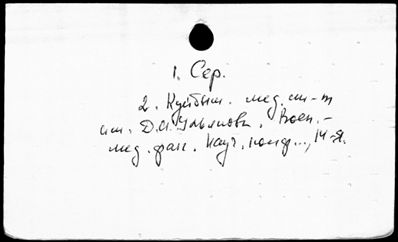 1. Сер.
2. Куйбыш. мед. ин-т
им. Д.И. Ульянова. Воен.-
мед. фак. Науч. конф..., 14-я.